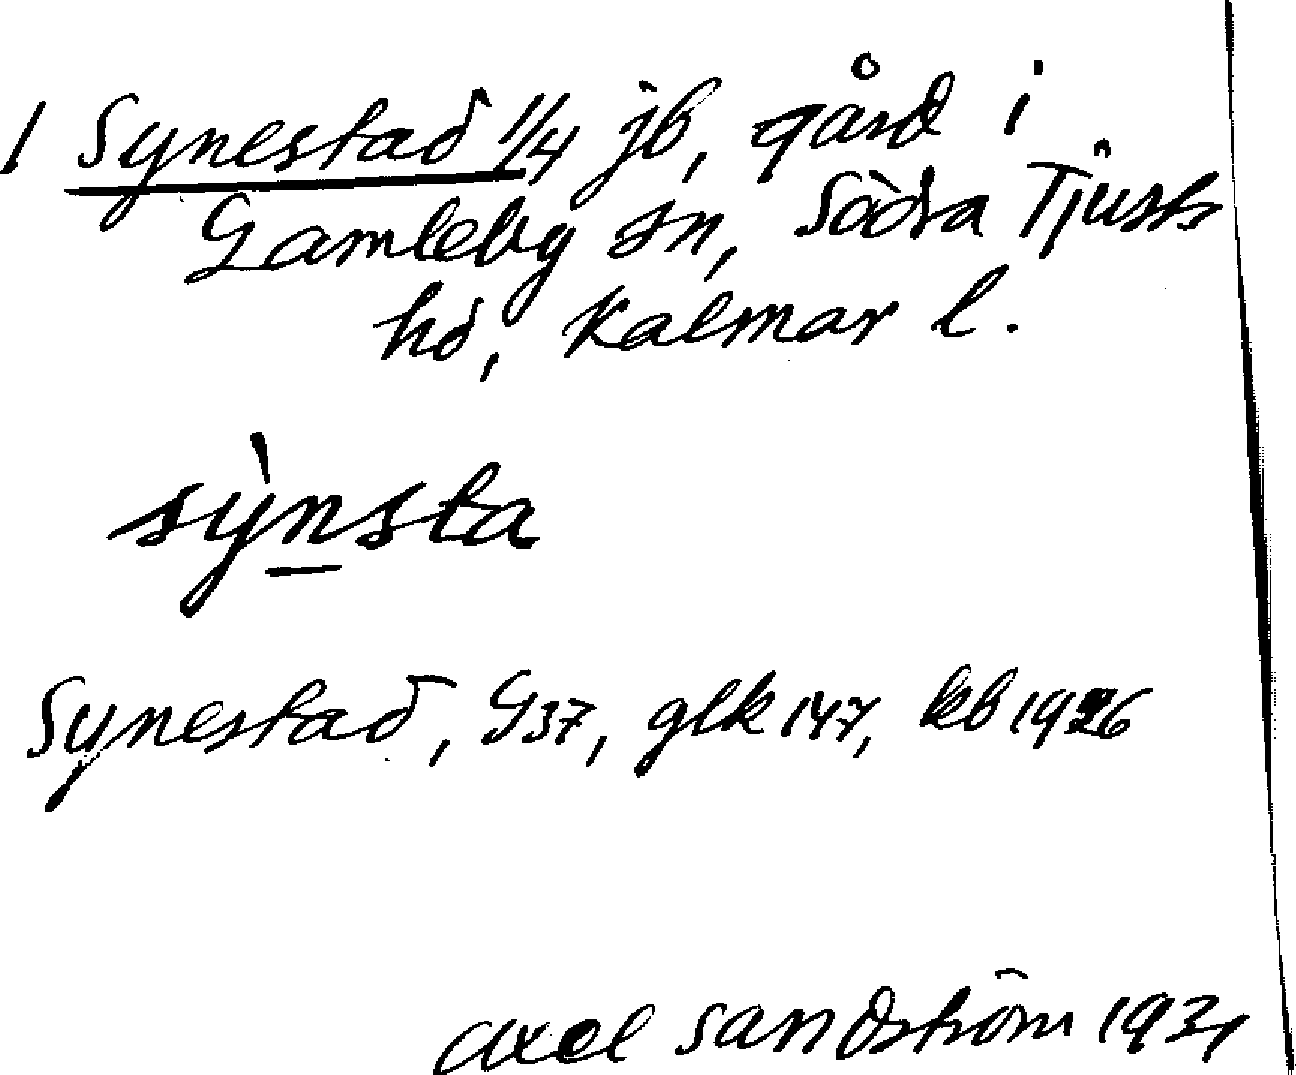 1 Synestad 1/4 jb, gård i
Gamleby sn, Södra Tjusts
hd, Kalmar l.
sỳnsta
Synestad, G37, glk 147, kb 1926
Axel Sandström